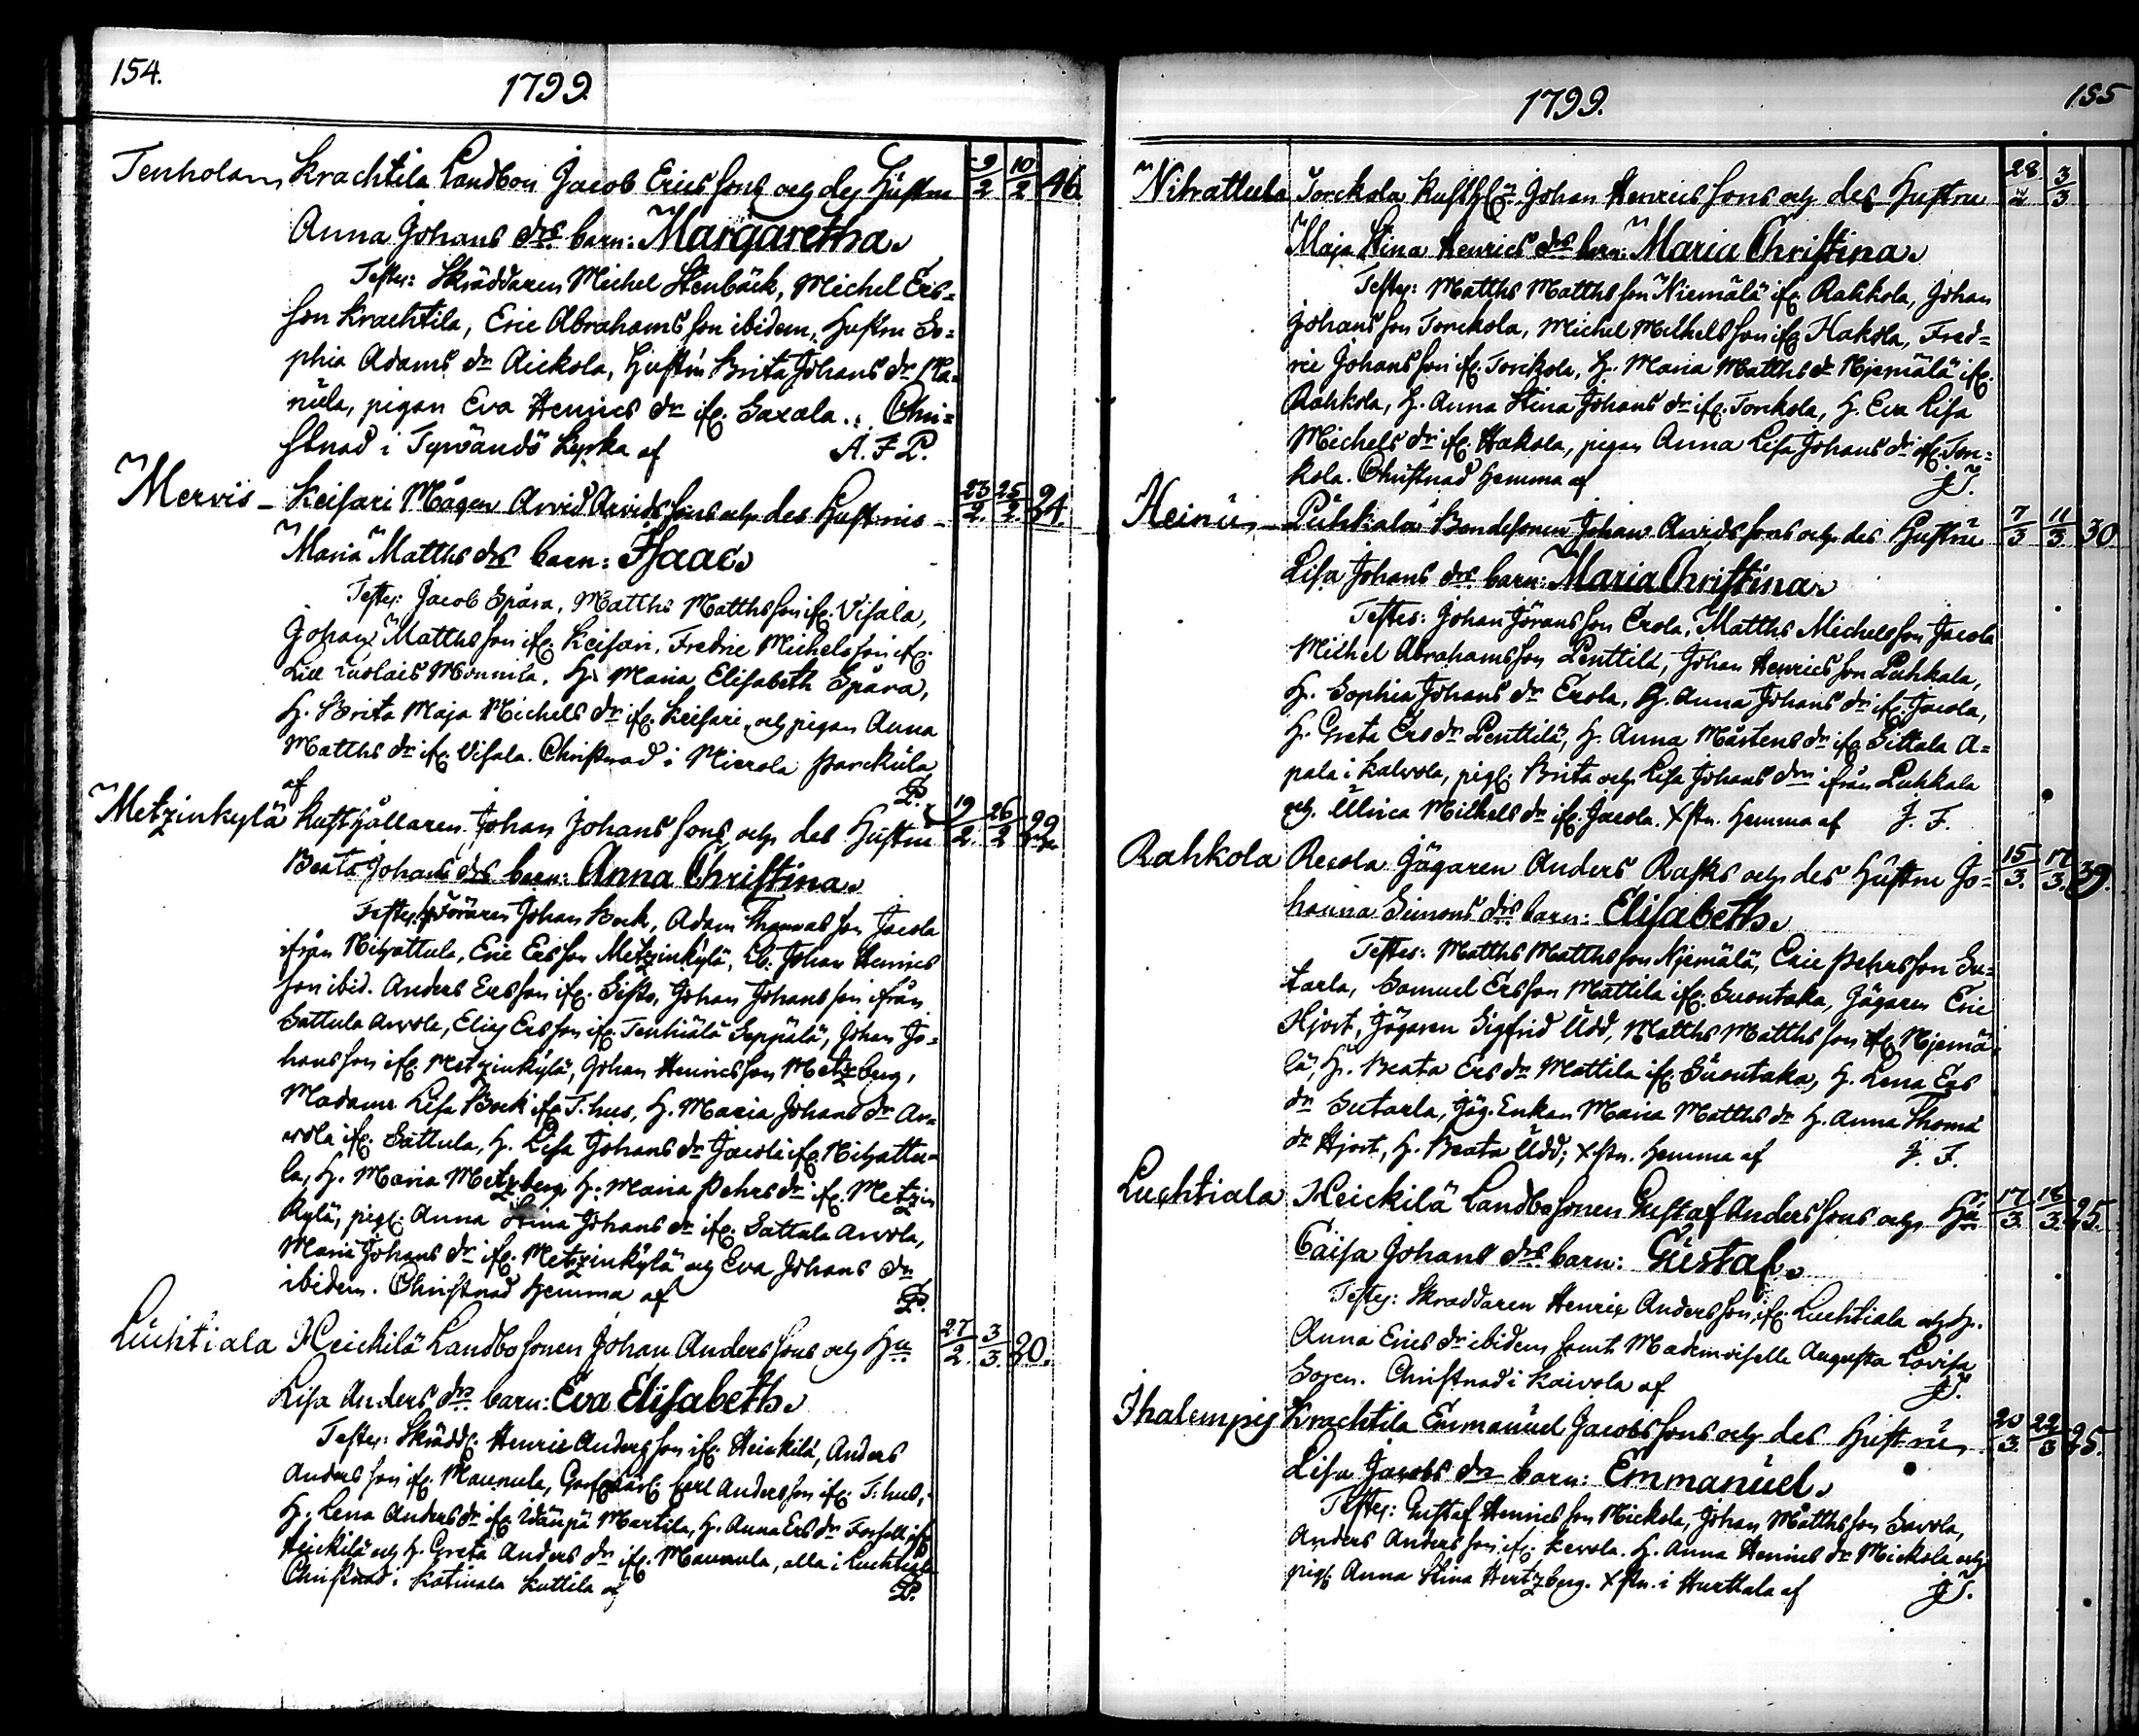 154.
1799.
Tenholan Krachtila Landbon Jacob Ericssons och des Hustru 9/2 10/2 46
Anna Johans drs barn: Margaretha.
Testes: Skräddaren Michel Stenbäck, Michel Ers=
son Krachtila, Eric Abrahamsson ibidem, Hustru So=
phia Adams dr Aickola, Hustru Brita Johans dr Ma=
nüla, pigan Eva Henrics dr ifr. Saxala. Chri=
stnad i Tyrvändö Kyrka af A. F. P.
Mervis - Keisari Mågen Arvid Arvidssons och des Hustrus 23/2. 25/2. 24.
Maria Matths drs barn: Isaac.
Testes: Jacob Spåra, Matths Matthsson ifr. Visala,
Johan Matthsson ifr. Keisari, Fredric Michelsson ifr.
Lill Luolais Monnila, H. Maria Elisabeth Spåra,
H. Brita Maja Michels dr ifr. Keisari, och pigan Anna
Matths dr ifr. Visala. Christnad i Mierola parcküla
af P.
Metzinkylä Rusthållaren Johan Johanssons och des Hustru 19/2. 26/2 22
Beata Johans drs barn: Anna Christina.
Testes: Föraren Johan Bock, Adam Thomasson Jacola
ifrån Nihattula, Eric Ersson Metzinkylä, Lb. Johan Henrics
son ibid. Anders Ersson ifr. Sisto, Johan Johansson ifrån
Sattula Arvola, Elias Ersson ifr. Tenhiälä Seppälä, Johan Jo=
hansson ifr. Metzinkylä, Johan Henricsson Metzberg,
Madame Lisa Bock ifr. T:hus, H. Maria Johans dr Ar=
vola ifr. Sattula, H. Lisa Johans dr Jacola ifr. Nihattu=
la, H. Maria Metzberg, H. Maria Pehrs dr ifr. Metzin
kylä, pigl. Anna Stina Johans dr ifr. Sattula Arvola,
Maria Johans dr ifr. Metzinkylä och Eva Johans dr
ibidem. Christnad hemma af P.
Luchtiala Heickilä Landbosonen Johan Anderssons och Hu 27/2. 3/3. 20.
Lisa Anders drs barn: Eva Elisabeth.
Testes: Skrädd. Henric Andersson ifr. Heickilä, Anders
Andersson ifr. Maunula, Carl Andersson ifr. T:hus,
H. Lena Anders dr ifr. Idänpä Martila, H. Anna Ers dr Forsell ifr.
Heickilä och H. Greta Anders dr ifr. Maunula, alla i Luchtiala
Christnad i Katinala Kuttila af P.
1799. 155
Nihattula Torckola Rusthl:n Johan Henricssons och des Hustru 28/2 3/3
Maja Stina Henrics drs barn: Maria Christina.
Testes: Matths Matthsson Niemälä ifr. Rahkola, Johan
Johansson Torckola, Michel Michelsson ifr. Hakola, Fred=
ric Johansson ifr. Torckola, H. Maria Matths dr Njemälä ifr.
Rahkola, H. Anna Stina Johans dr ifr. Torckola, H. Eva Lisa
Michels dr ifr. Hakola, pigan Anna Lisa Johans dr ifr. Tor=
kola. Christnad hemma af J. F.
Heinü - Puhkala Bondesonen Johan Arvidssons och des Hustru 7/3 11/3 30
Lisa Johans drs barn: Maria Christina.
Testes: Johan Jöransson Erola, Matths Michelsson Jacola
Michel Abrahamsson Penttilä, Johan Henricsson Puhkala,
H. Sophia Johans dr Erola, H. Anna Johans dr ifr. Jacola,
H. Greta Ers dr Penttilä, H. Anna Mårtens dr ifr. Sittala A=
pala i Kalvola, pigl. Brita och Lisa Johans drn ifrån Puhkala
och Ulrica Michels dr ifr. Jacola. Xstn. hemma af J. F.
Rahkola Recola Jägaren Anders Rasks och des Hustru Jo= 15/3. 17/3. 39.
hanna Simons drs barn: Elisabeth.
Testes: Matths Matthsson Njemälä, Eric Pehrsson Su=
tarla, Samuel Ersson Mattila ifr. Suontaka, Jägaren Eric
Hjort, Jägaren Sigfrid Udd, Matths Matthsson ifr. Njemä=
lä, H. Beata Ers dr Mattila ifr. Suontaka, H. Lena Ers
dr Sutarla, Jäg. Enkan Maria Matths dr H. Anna Thoms
dr Hjort, H. Beata Udd; Xstn. hemma af J. F.
Luchtiala Heickilä Landbosonen Gustaf Anderssons och Hu 17/3. 18/3. 25.
Caisa Johans drs barn: Gustaf.
Testes: Skräddaren Henric Andersson ifr. Luchtiala och H.
Anna Erics dr ibidem samt Mademoiselle Augusta Lovisa
Christnad i Kaivola af J. F.
Ihalempis Krachtila Emmanuel Jacobssons och des Hustru 20/3. 22/3 25.
Lisa Jacobs drs barn: Emmanuel.
Testes: Gustaf Henricsson Mickola, Johan Matthsson Savola,
Anders Andersson ifr. Kerola. H. Anna Henrics dr Mickola och
pigl. Anna Stina Hertzberg. Xstn. i Hurttala af J. F.